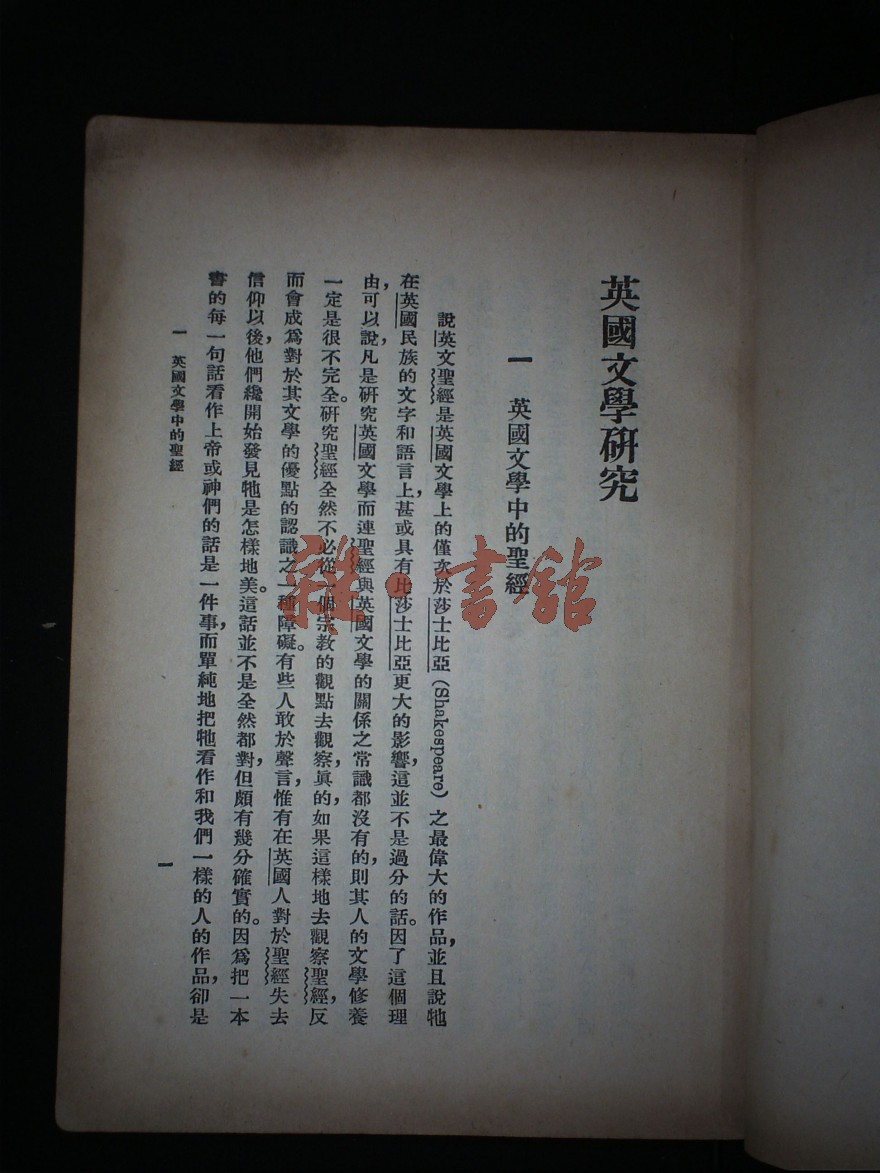 英國文學研究
一 英國文學中的聖經
說英文聖經是英國文學上的僅次於莎士比亞(Shakespeare)之最偉大的作品,並且說牠
在英國民族的文字和語言上,甚或具有比莎士比亞更大的影響,這並不是過分的話。因了這個理
由,可以說,凡是研究英國文學而連聖經與英國文學的關係之常識都沒有的,則其人的文學修養
一定是很不完全。研究聖經全然不必從一個宗教的觀點去觀察,眞的,如果這樣地去觀察聖經,反
而會成爲對於其文學的優點的認識之一種障礙。有些人敢於聲言,惟有在英國人對於聖經失去
信仰以後,他們纔開始發見牠是怎樣地美。這話並不是全然都對,但頗有幾分確實的。因爲把一本
書的每一句話看作上帝或神們的話是一件事,而單純地把牠看作和我們一樣的人的作品,卻是
一 英國文學中的聖經
一
雜·書館